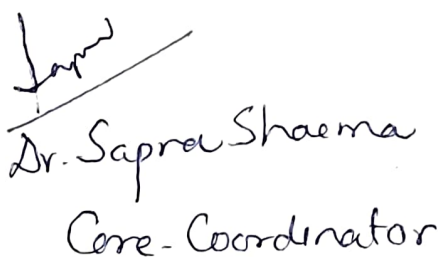 Dr. Sapra Shaema
Core-Coordinator